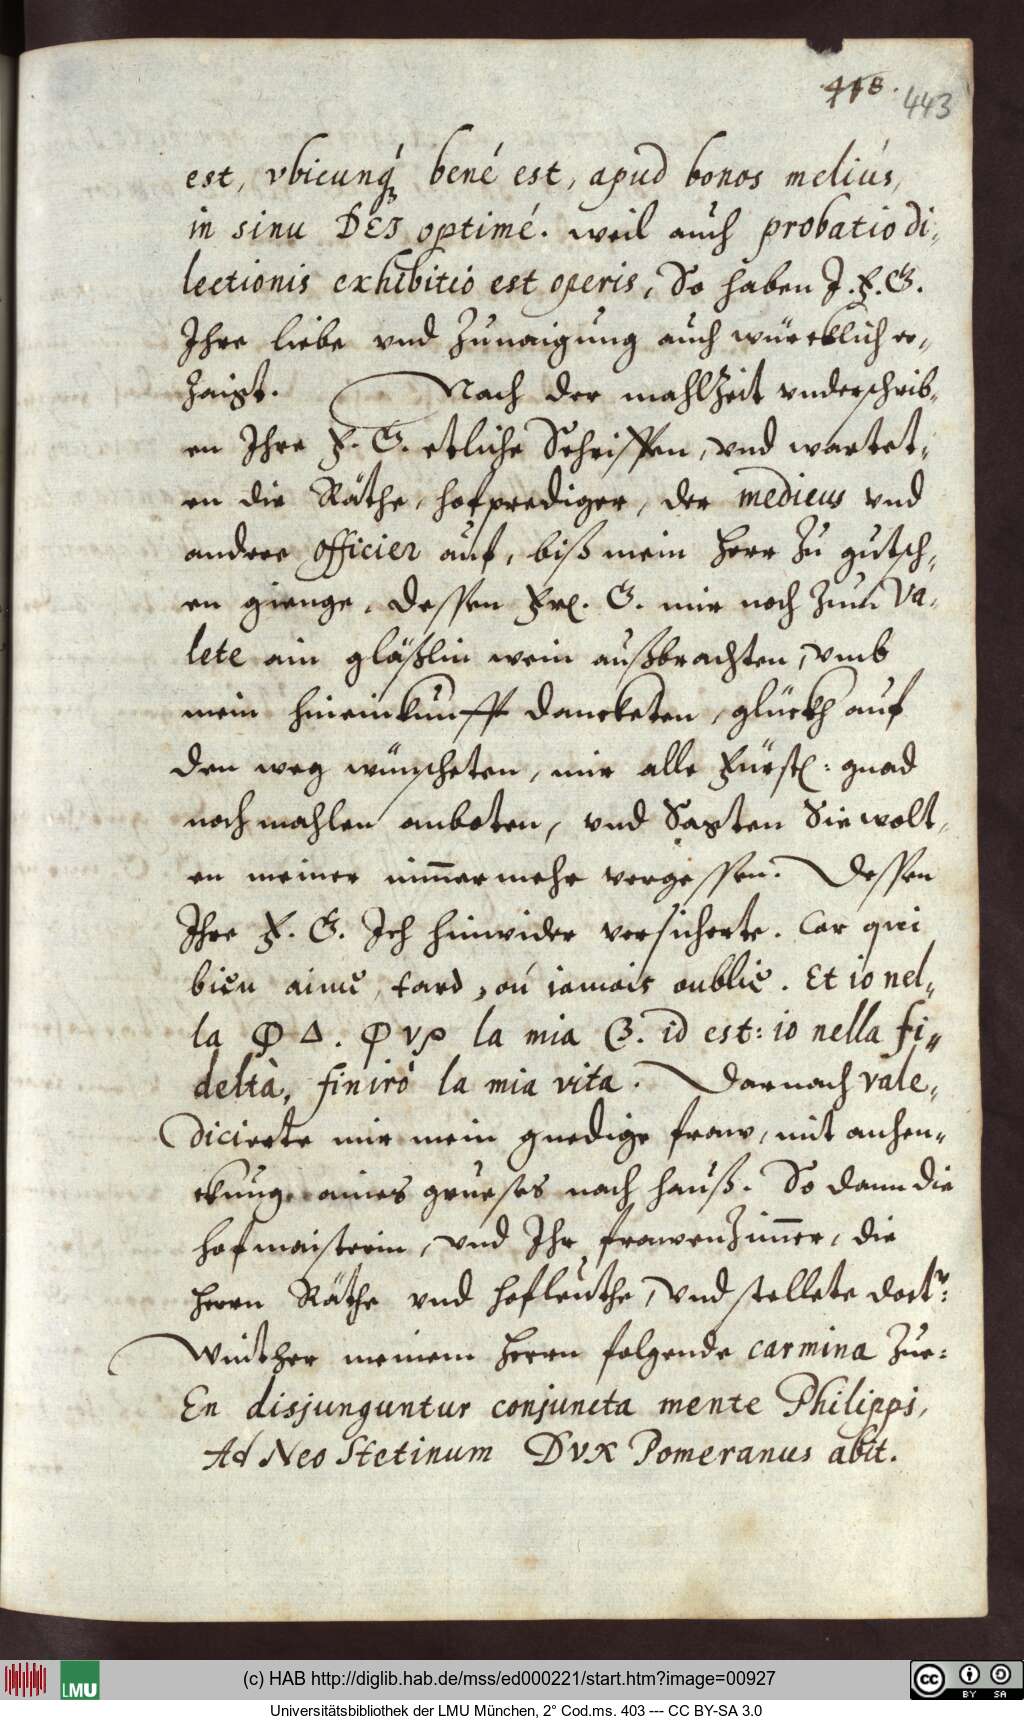 418. 443
est, vbicunq́ꝫ bené est, apud bonos meliús,
in sinu DEJ optimé. weil auch probatio di„
lectionis exhibitio est operis, So haben J. F. G.
Ihre liebe vnd Zunaigung auch würcklich er„
Zaigt. Nach der mahlZeit vnderschrib„
en Ihre F. G. etliche Schrifften, vnd wartet„
en die Räthe, hofprediger, der medicus vnd
andere officier auf, biß mein Herr Zu gutsch„
en gienge, dessen Frl. G. mir noch Zum Va„
lete ain gläßlin wein außbrachten, vmb
mein hineinkunfft danckheten, glückh auf
den weg wünscheten, mir alle Fürstl: gnad
nochmahlen anboten, vnd Sagten Sie wolt„
en meiner nim̄ermehr vergessen. Dessen
Ihre F. G. Ich hinwider versicherte. Car qui
bien aime, tard, oú iamais oublie. Et io nel„
la Φ Δ. Φ vρ la mia G. id est: io nella fi„
deltà, finirò la mia vita. Darnach vale„
dicierte mir mein gnedige fraw, mit anhen„
ckung aines grueses nach hauß. So dann die
hofmaisterin, vnd Ihr frawenZim̄er, die
Herrn Räthe vnd hofleuthe, Vnd stellete doctʳ:
Winther meinem Herrn folgende carmina Zue:
En disjunguntur conjuncta mente Philippi,
Ad Neo Stetinum Dvx Pomeranus abit.
(c) HAB http://diglib.hab.de/mss/ed000221/start.htm?image=00927
LMU
cc BY SA
Universitätsbibliothek der LMU München, 2° Cod.ms. 403 --- CC BY-SA 3.0